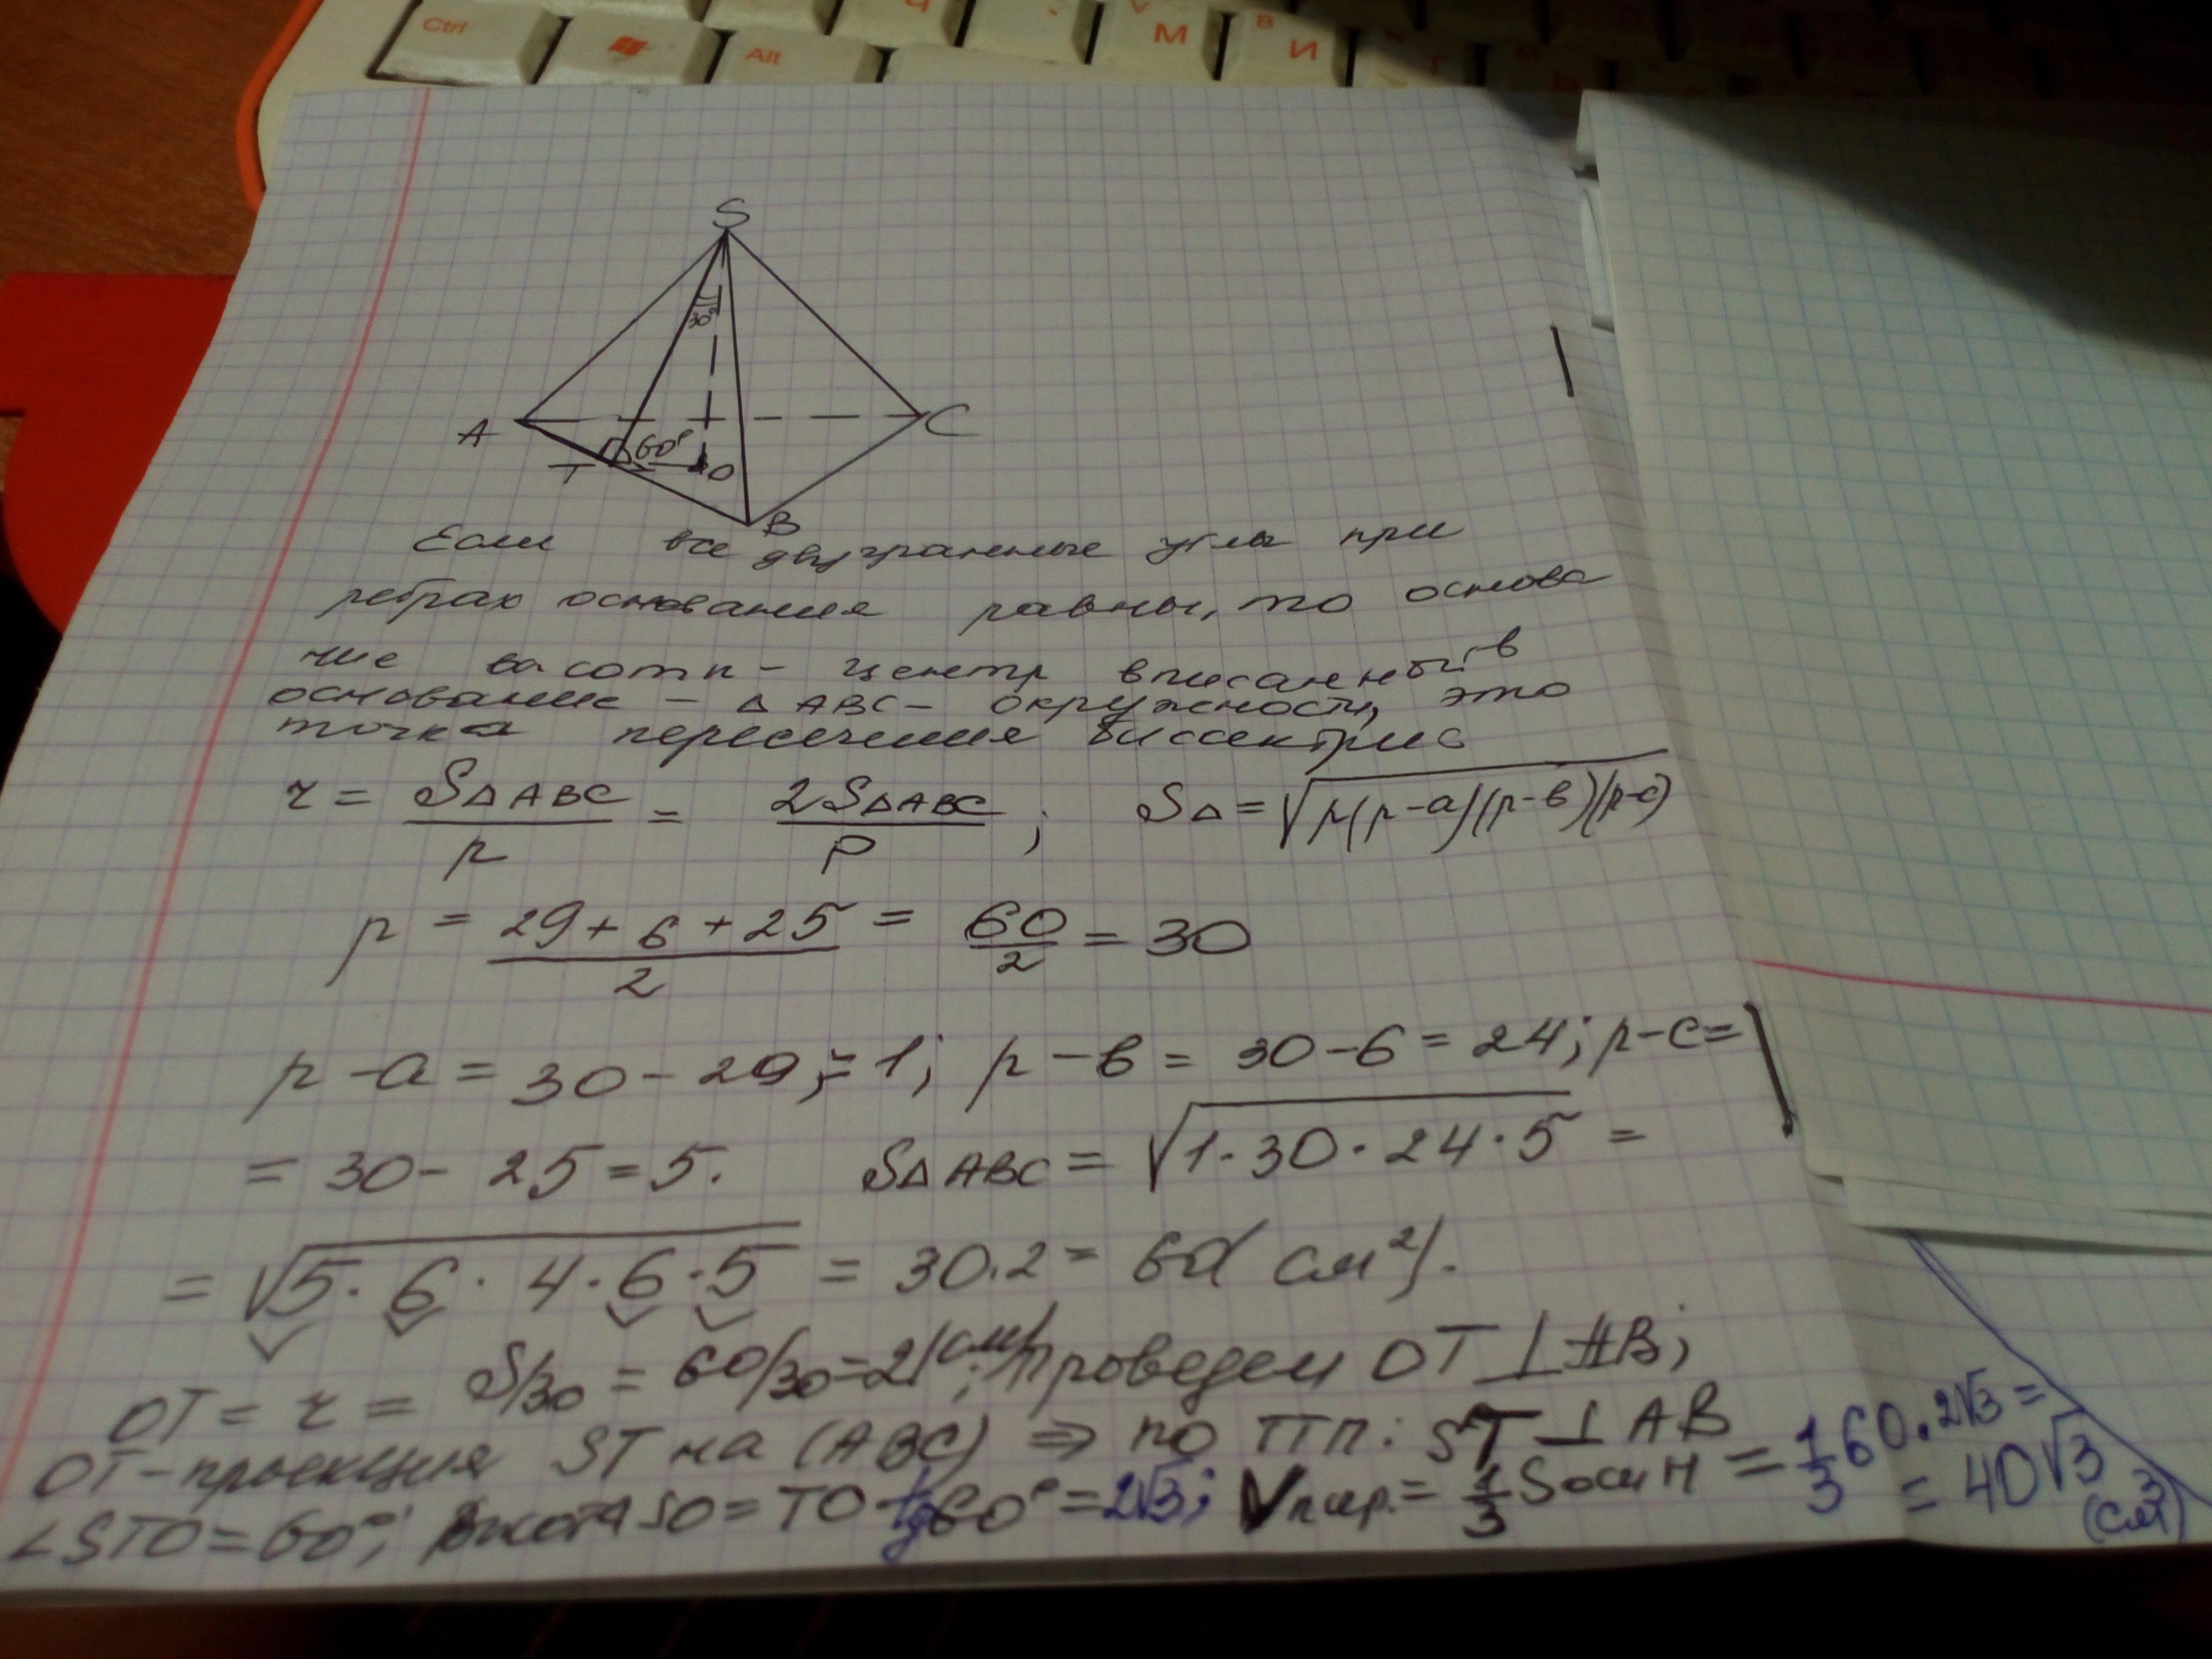 Ctrl
Alt
М
В
И
S
30°
A
C
60°
T
O
B
Если все двугранные углы при
ребрах основания равны, то основа
ние высоты – центр вписанный в
основание – △ABC – окружности, это
точка пересечения биссектрис
r = S△ABC / p = 2S△ABC / P ; S△ = √p(p-a)(p-в)(p-c)
p = (29 + 6 + 25) / 2 = 60/2 = 30
p - a = 30 - 29 = 1; p - в = 30 - 6 = 24; p - c =
= 30 - 25 = 5. S△ABC = √1·30·24·5 =
= √5·6·4·6·5 = 30·2 = 60(см²).
OT = r = S/30 = 60/30 = 2(см); Проведем OT ⊥ AB;
OT – проекция ST на (ABC) ⇒ по ТТП: ST ⊥ AB
∠STO = 60°; Высота SO = TO · tg60° = 2√3; Vпир. = 1/3 Sосн H = 1/3 60 · 2√3 =
= 40√3
(см³)